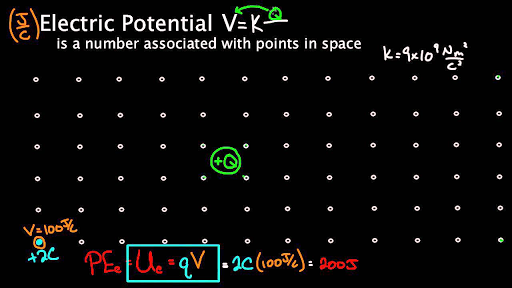 (J/C) Electric Potential V=K Q
is a number associated with points in space
K=9x10⁹ Nm²/C²
+Q
V=100J/C
+2C
PEe = Ue = qV = 2C (100J/C) = 200J